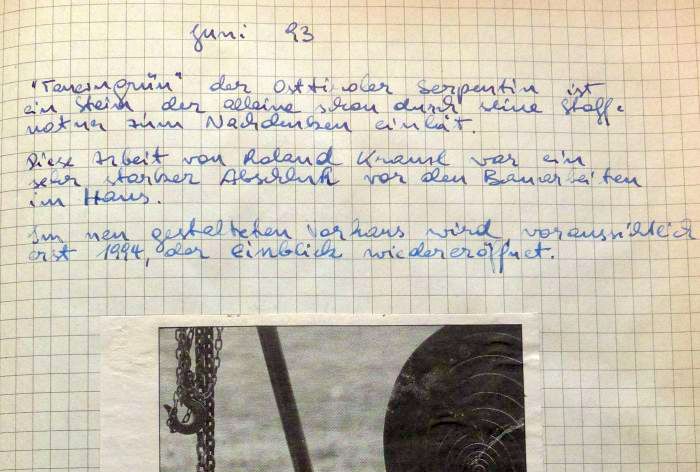 Juni 93
"Tauerngrün" der Osttiroler Serpentin ist
ein Stein der alleine schon durch seine Stoff-
natur zum Nachdenken einlät.
Diese Arbeit von Roland Kraml war ein
sehr starker Abschluß vor den Bauarbeiten
im Haus.
Im neu gestalteten Vorhaus wird voraussichtlich
erst 1994, der Einblick wiedereröffnet.